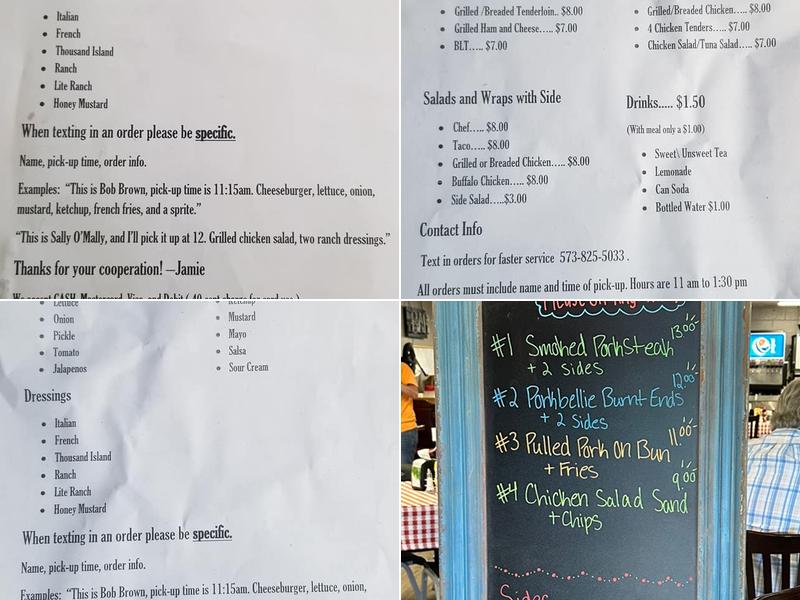 Italian
French
Thousand Island
Ranch
Lite Ranch
Honey Mustard
When texting in an order please be specific.
Name, pick-up time, order info.
Examples: “This is Bob Brown, pick-up time is 11:15am. Cheeseburger, lettuce, onion,
mustard, ketchup, french fries, and a sprite.”
“This is Sally O’Malley, and I’ll pick it up at 12. Grilled chicken salad, two ranch dressings.”
Thanks for your cooperation! –Jamie
We accept CASH, Mastercard, Visa, and Debit ( 40 cent charge for card use )
Grilled /Breaded Tenderloin.. $8.00
Grilled Ham and Cheese….. $7.00
BLT….. $7.00
Grilled/Breaded Chicken….. $8.00
4 Chicken Tenders….. $7.00
Chicken Salad/Tuna Salad….. $7.00
Salads and Wraps with Side
Chef….. $8.00
Taco….. $8.00
Grilled or Breaded Chicken….. $8.00
Buffalo Chicken….. $8.00
Side Salad…..$3.00
Drinks..... $1.50
(With meal only a $1.00)
Sweet\ Unsweet Tea
Lemonade
Can Soda
Bottled Water $1.00
Contact Info
Text in orders for faster service 573-825-5033 .
All orders must include name and time of pick-up. Hours are 11 am to 1:30 pm
Lettuce
Onion
Pickle
Tomato
Jalapenos
Ketchup
Mustard
Mayo
Salsa
Sour Cream
Dressings
Italian
French
Thousand Island
Ranch
Lite Ranch
Honey Mustard
When texting in an order please be specific.
Name, pick-up time, order info.
Examples: “This is Bob Brown, pick-up time is 11:15am. Cheeseburger, lettuce, onion,
#1 Smoked Porksteak 13.00
+ 2 sides
#2 Porkbellie Burnt Ends 12.00
+ 2 Sides
#3 Pulled Pork On Bun 11.00
+ Fries
#4 Chicken Salad Sand 9.00
+Chips
Sides